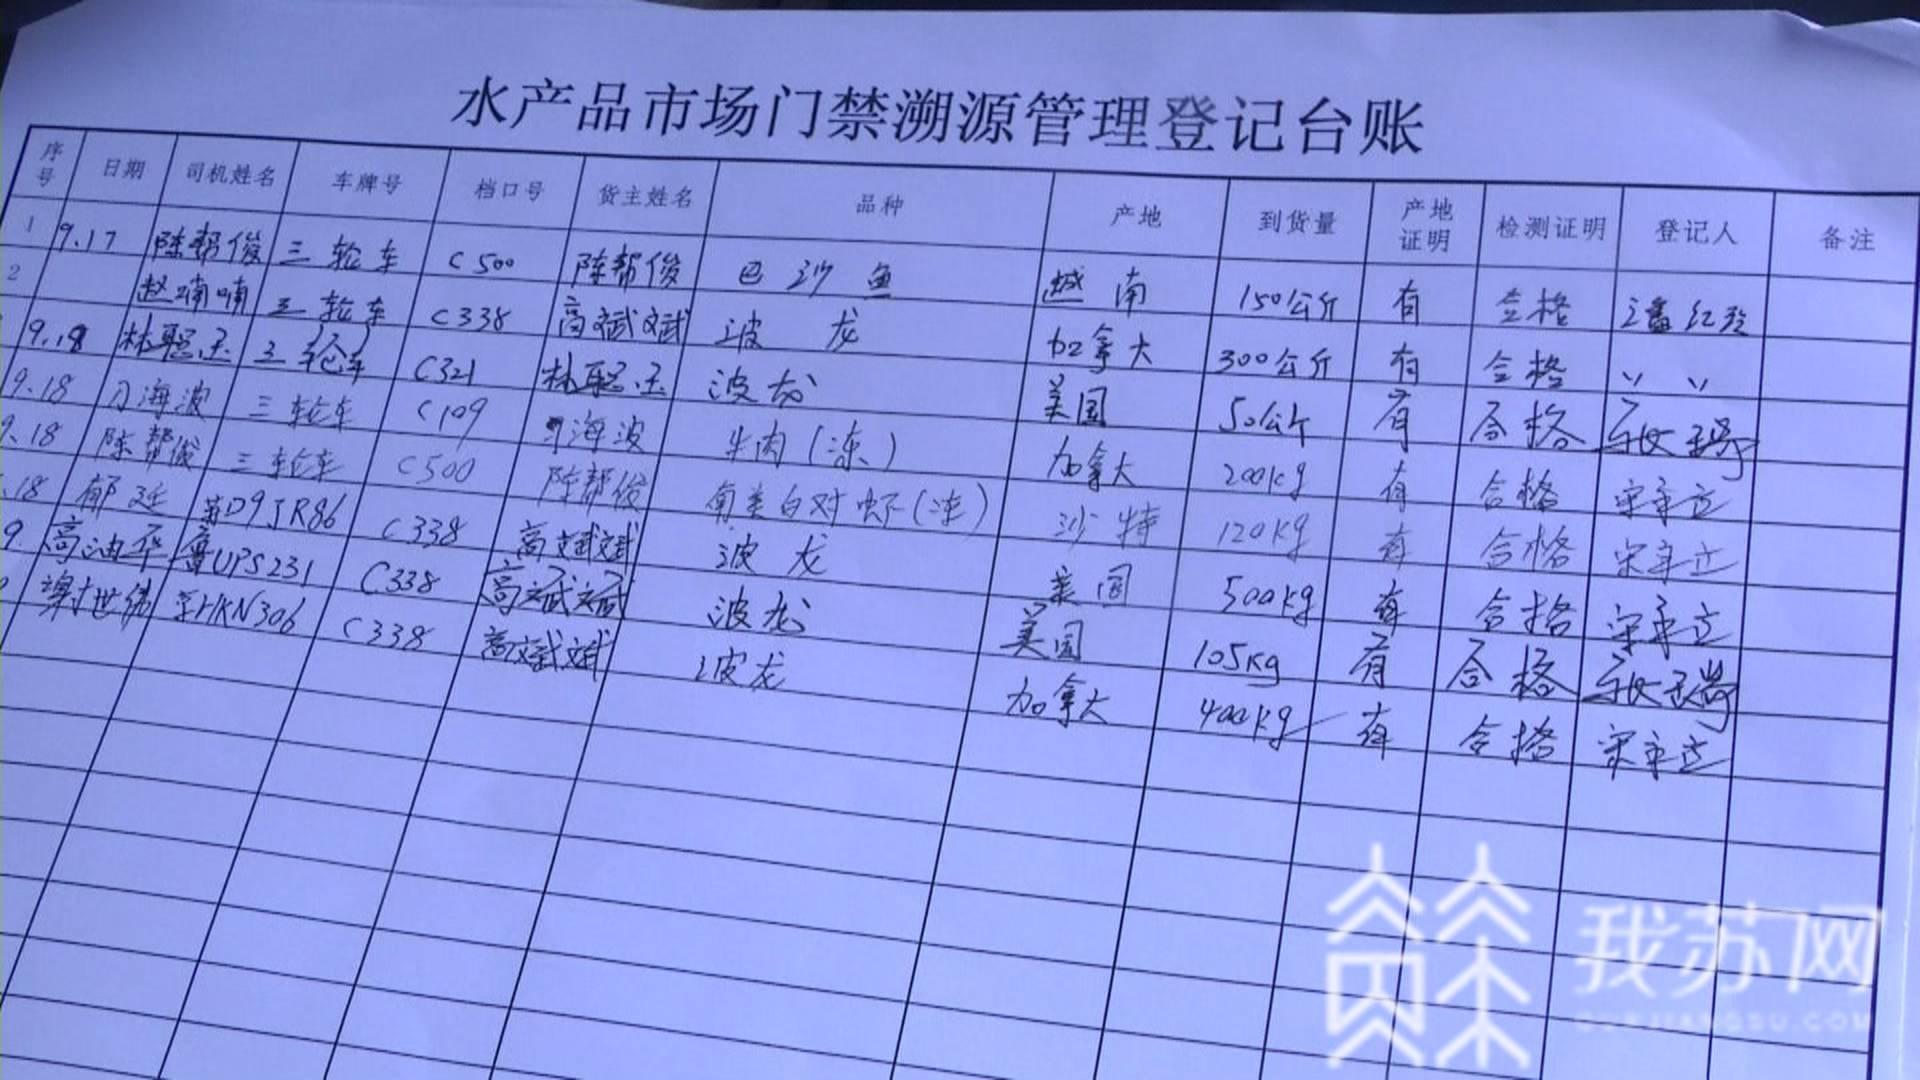 水产品市场门禁溯源管理登记台账
序号 日期 司机姓名 车牌号 档口号 货主姓名 品种 产地 到货量 产地证明 检测证明 登记人 备注
1 9.17 陈帮俊 三轮车 C500 陈帮俊 巴沙鱼 越南 150公斤 有 合格 潘红玲
2 赵喃喃 三轮车 C338 高斌斌 波龙 加拿大 300公斤 有 合格 〃 〃
9.18 林聪玉 三轮车 C321 林聪玉 波龙 美国 50公斤 有 合格
9.18 刁海波 三轮车 C109 刁海波 牛肉(冻) 加拿大 200kg 有 合格 宋永立
9.18 陈帮俊 三轮车 C500 陈帮俊 南美白对虾(冻) 沙特 120kg 有 合格 宋永立
.18 郁廷 苏D9JR86 C338 高斌斌 波龙 美国 500kg 有 合格 宋永立
9. 高迪华 鲁UPS231 C338 高斌斌 波龙 美国 105kg 有 合格
谢世伟 HKN306 C338 高斌斌 波龙 加拿大 400kg 有 合格 宋永立
我苏网
OURJIANGSU.COM